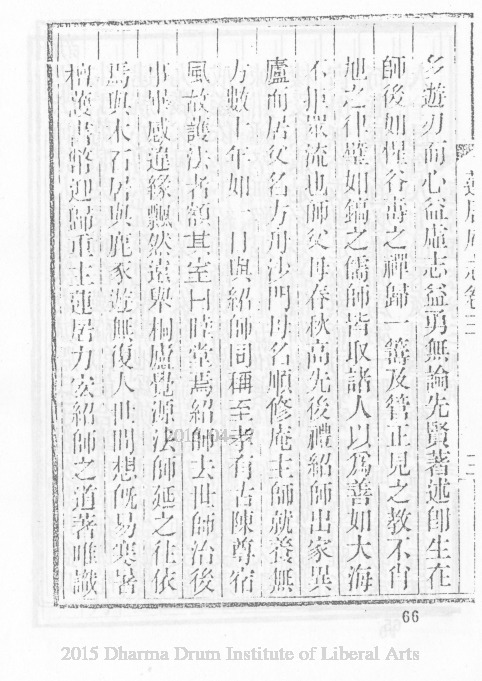 乡遊刃而心益虛志益勇無論先賢著述卽生在
師後如惺谷壽之禪歸一籌及管正見之教不肖
旭之律璧如鎬之儒師皆取諸人以爲善如大海
不拒眾流也師父母春秋高先後禮紹師出家異
廬而居父名方舟沙門母名順修庵主師就養無
方數十年如一日與紹師同稱至孝有古陳尊宿
風故護法者額其室曰睦堂焉紹師去世師治後
事畢感違緣飄然遠舉桐廬覺源法師延之往依
焉與木石居與鹿豕遊無復人世間想旣易寒暑
檀護書幣迎歸重主蓮居力宏紹師之道著唯識
蓮居庵志卷三
三
66
2015 Dharma Drum Institute of Liberal Arts